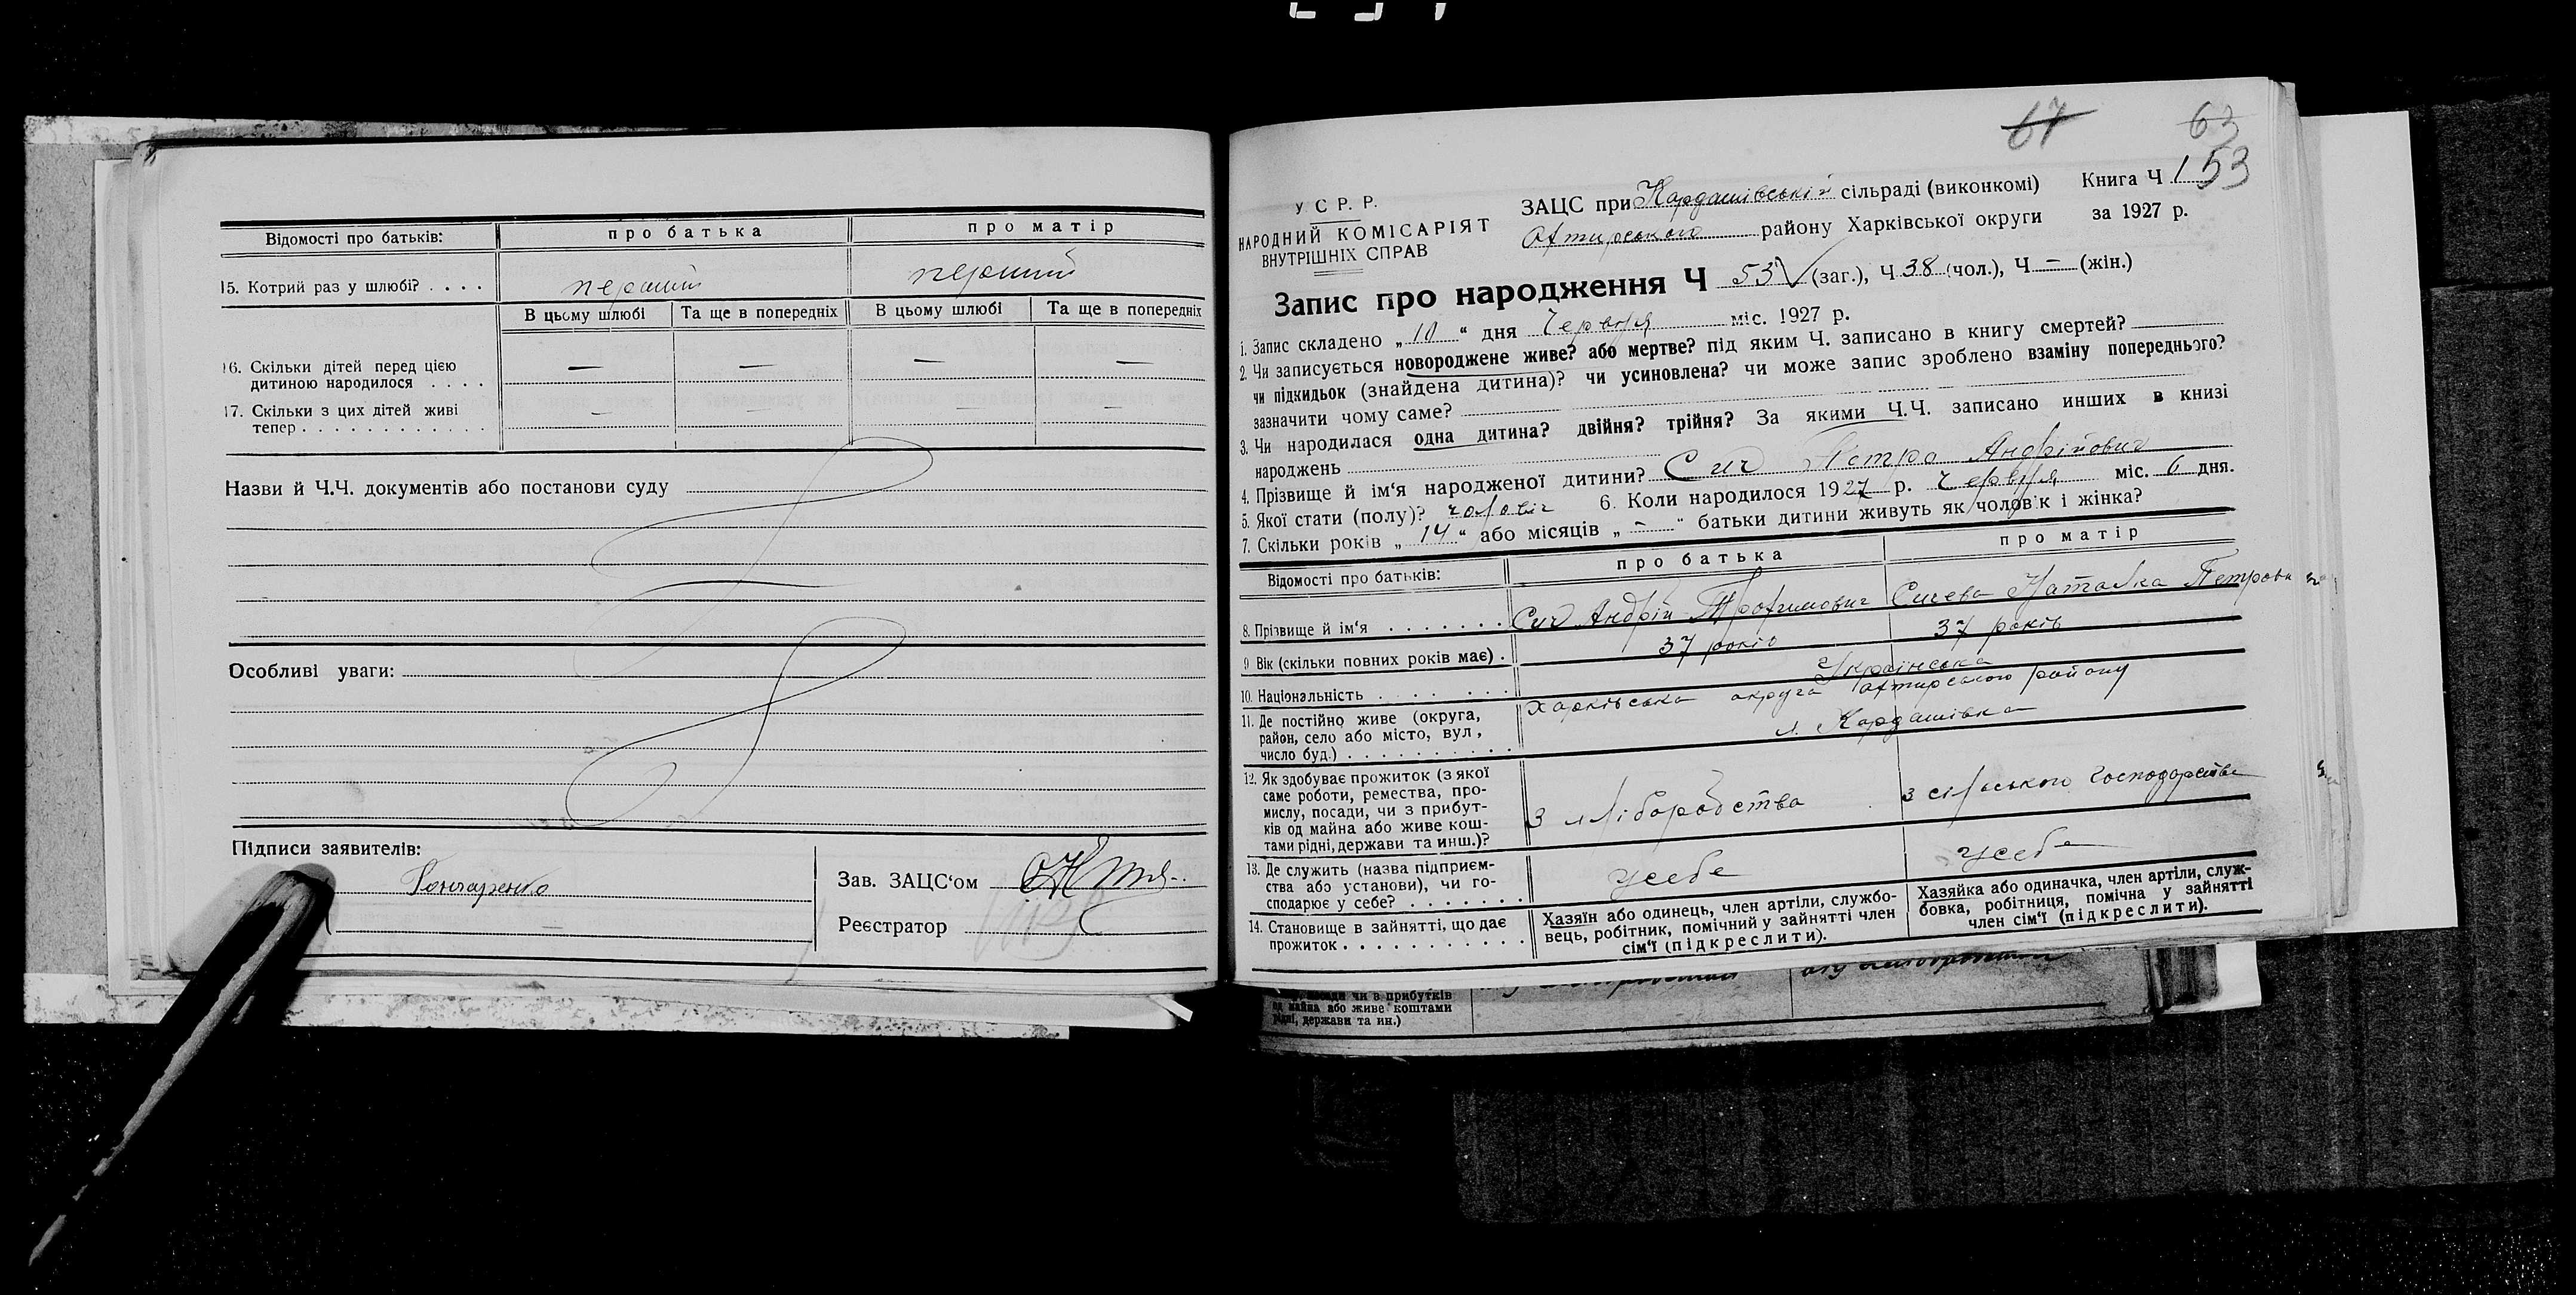 Відомості про батьків: про батька про матір
15. Котрий раз у шлюбі? . . . . перший перший
В цьому шлюбі Та ще в попередніх В цьому шлюбі Та ще в попередніх
16. Скільки дітей перед цією — — — —
дитиною народилося . . . .
17. Скільки з цих дітей живі — — — —
тепер . . . . . . . . . . . . .
Назви й Ч.Ч. документів або постанови суду
Особливі уваги:
Підписи заявителів:
Гончаренко
Зав. ЗАЦС‘ом
Реєстратор
67 63
У С Р. Р.
НАРОДНИЙ КОМІСАРІЯТ
ВНУТРІШНІХ СПРАВ
ЗАЦС при Кардашівській сільраді (виконкомі) Книга Ч 1 53
Охтирського району Харківської округи за 1927 р.
Запис про народження Ч 53 (заг.), Ч 38 (чол.), Ч — (жін.)
1. Запис складено „ 10 “ дня Червня міс. 1927 р.
2. Чи записується новороджене живе? або мертве? під яким Ч. записано в книгу смертей?
чи підкидьок (знайдена дитина)? чи усиновлена? чи може запис зроблено взаміну попереднього?
зазначити чому саме?
3. Чи народилася одна дитина? двійня? трійня? За якими Ч.Ч. записано инших в книзі
народжень
4. Прізвище й ім‘я народженої дитини? Сич Петро Андрійович
5. Якої стати (полу)? чоловіч 6. Коли народилося 1927 р. Червня міс. 6 дня.
7. Скільки років „ 14 “ або місяців „ — “ батьки дитини живуть як чоловік і жінка?
Відомості про батьків: про батька про матір
8. Прізвище й ім‘я . . . . . . . Сич Андрій Трофимович Сичева Наталка Петровна
9 Вік (скільки повних років має) . 37 років 37 років
10. Національність . . . . . . . Українська
11. Де постійно живе (округа, Харківська округа Охтирського району
район, село або місто, вул, с. Кардашівка
число буд.) . . . . . . . . . . .
12. Як здобуває прожиток (з якої
саме роботи, ремества, про-
мислу, посади, чи з прибут- з хліборобства з сільського господарства
ків од майна або живе кош-
тами рідні, держави та инш.)?
13. Де служить (назва підприєм- усебе усебе
ства або установи), чи го-
сподарює у себе? . . . . . . .
14. Становище в зайнятті, що дає
прожиток . . . . . . . . . . . .
Хазяїн або одинець, член артіли, службо-
вець, робітник, помічний у зайнятті член
сім‘ї (підкреслити).
Хазяйка або одиначка, член артіли, служ-
бовка, робітниця, помічна у зайнятті
член сім‘ї (підкреслити).
чи в прибутків
од майна або живе коштами
рідні, держави та ин.)